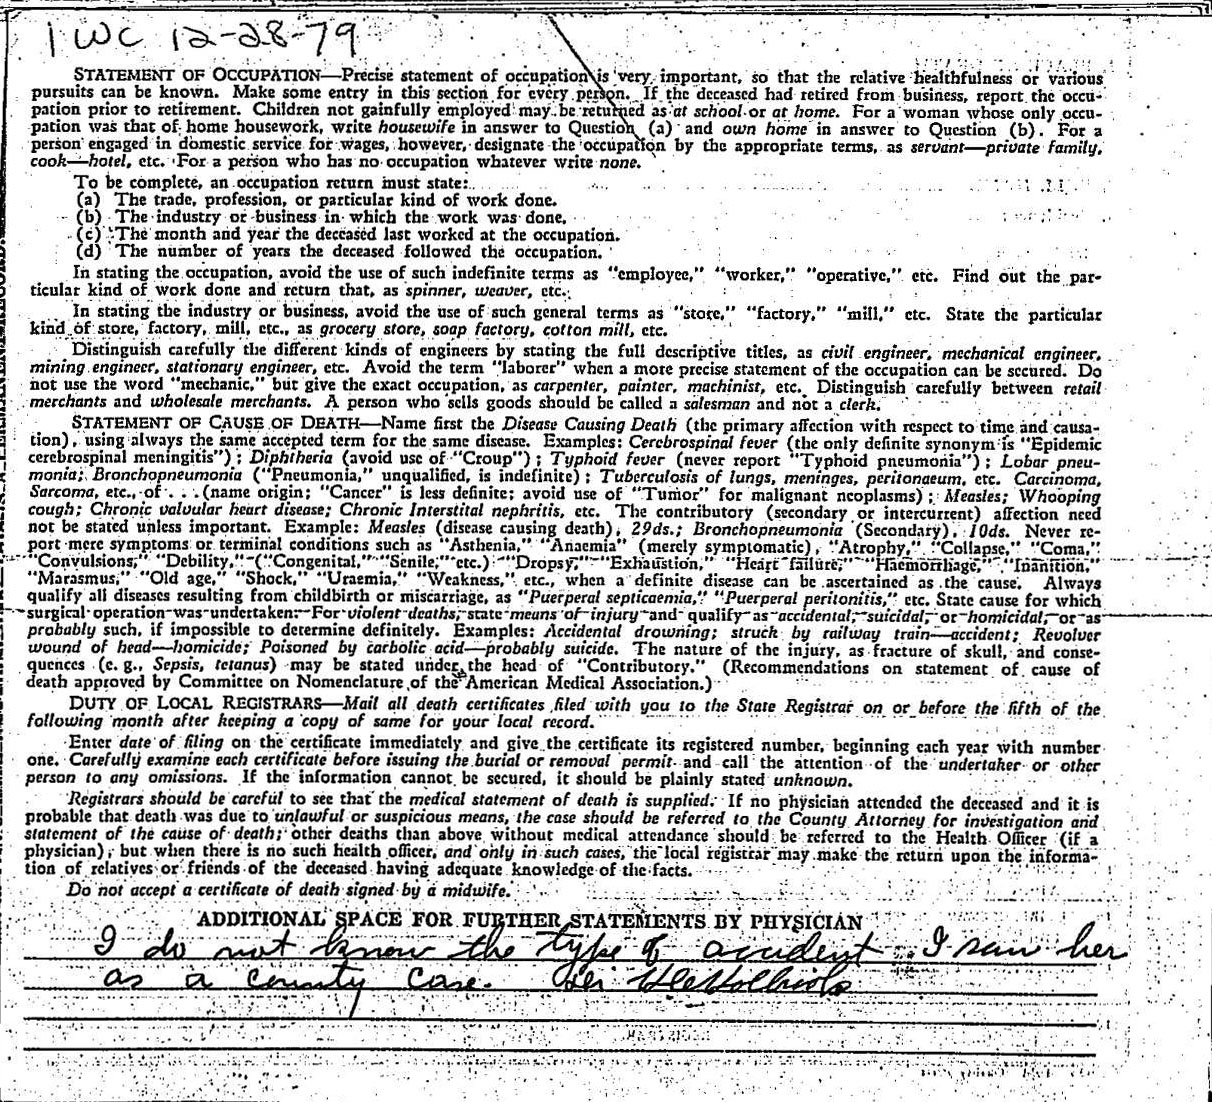 1 WC 12-28-79
STATEMENT OF OCCUPATION—Precise statement of occupation is very important, so that the relative healthfulness or various
pursuits can be known. Make some entry in this section for every person. If the deceased had retired from business, report the occu-
pation prior to retirement. Children not gainfully employed may be returned as at school or at home. For a woman whose only occu-
pation was that of home housework, write housewife in answer to Question (a) and own home in answer to Question (b). For a
person engaged in domestic service for wages, however, designate the occupation by the appropriate terms, as servant—private family,
cook—hotel, etc. For a person who has no occupation whatever write none.
To be complete, an occupation return must state:
(a) The trade, profession, or particular kind of work done.
(b) The industry or business in which the work was done.
(c) The month and year the deceased last worked at the occupation.
(d) The number of years the deceased followed the occupation.
In stating the occupation, avoid the use of such indefinite terms as "employee," "worker," "operative," etc. Find out the par-
ticular kind of work done and return that, as spinner, weaver, etc.
In stating the industry or business, avoid the use of such general terms as "store," "factory," "mill," etc. State the particular
kind of store, factory, mill, etc., as grocery store, soap factory, cotton mill, etc.
Distinguish carefully the different kinds of engineers by stating the full descriptive titles, as civil engineer, mechanical engineer,
mining engineer, stationary engineer, etc. Avoid the term "laborer" when a more precise statement of the occupation can be secured. Do
not use the word "mechanic," but give the exact occupation, as carpenter, painter, machinist, etc. Distinguish carefully between retail
merchants and wholesale merchants. A person who sells goods should be called a salesman and not a clerk.
STATEMENT OF CAUSE OF DEATH—Name first the Disease Causing Death (the primary affection with respect to time and causa-
tion), using always the same accepted term for the same disease. Examples: Cerebrospinal fever (the only definite synonym is "Epidemic
cerebrospinal meningitis"); Diphtheria (avoid use of "Croup"); Typhoid fever (never report "Typhoid pneumonia"); Lobar pneu-
monia; Bronchopneumonia ("Pneumonia," unqualified, is indefinite); Tuberculosis of lungs, meninges, peritonaeum, etc. Carcinoma,
Sarcoma, etc., of . . . (name origin; "Cancer" is less definite; avoid use of "Tumor" for malignant neoplasms); Measles; Whooping
cough; Chronic valvular heart disease; Chronic Interstital nephritis, etc. The contributory (secondary or intercurrent) affection need
not be stated unless important. Example: Measles (disease causing death), 29ds.; Bronchopneumonia (Secondary), 10ds. Never re-
port mere symptoms or terminal conditions such as "Asthenia," "Anaemia" (merely symptomatic), "Atrophy," "Collapse," "Coma,"
"Convulsions," "Debility," ("Congenital," "Senile," etc.) "Dropsy," "Exhaustion," "Heart failure," "Haemorrhage," "Inanition,"
"Marasmus," "Old age," "Shock," "Uraemia," "Weakness," etc., when a definite disease can be ascertained as the cause. Always
qualify all diseases resulting from childbirth or miscarriage, as "Puerperal septicaemia," "Puerperal peritonitis," etc. State cause for which
surgical operation was undertaken. For violent deaths, state means of injury and qualify as accidental, suicidal, or homicidal, or as
probably such, if impossible to determine definitely. Examples: Accidental drowning; struck by railway train—accident; Revolver
wound of head—homicide; Poisoned by carbolic acid—probably suicide. The nature of the injury, as fracture of skull, and conse-
quences (e. g., Sepsis, tetanus) may be stated under the head of "Contributory." (Recommendations on statement of cause of
death approved by Committee on Nomenclature of the American Medical Association.)
DUTY OF LOCAL REGISTRARS—Mail all death certificates filed with you to the State Registrar on or before the fifth of the
following month after keeping a copy of same for your local record.
Enter date of filing on the certificate immediately and give the certificate its registered number, beginning each year with number
one. Carefully examine each certificate before issuing the burial or removal permit and call the attention of the undertaker or other
person to any omissions. If the information cannot be secured, it should be plainly stated unknown.
Registrars should be careful to see that the medical statement of death is supplied. If no physician attended the deceased and it is
probable that death was due to unlawful or suspicious means, the case should be referred to the County Attorney for investigation and
statement of the cause of death; other deaths than above without medical attendance should be referred to the Health Officer (if a
physician), but when there is no such health officer, and only in such cases, the local registrar may make the return upon the informa-
tion of relatives or friends of the deceased having adequate knowledge of the facts.
Do not accept a certificate of death signed by a midwife.
ADDITIONAL SPACE FOR FURTHER STATEMENTS BY PHYSICIAN
I do not know the type of accident. I saw her
as a county case.